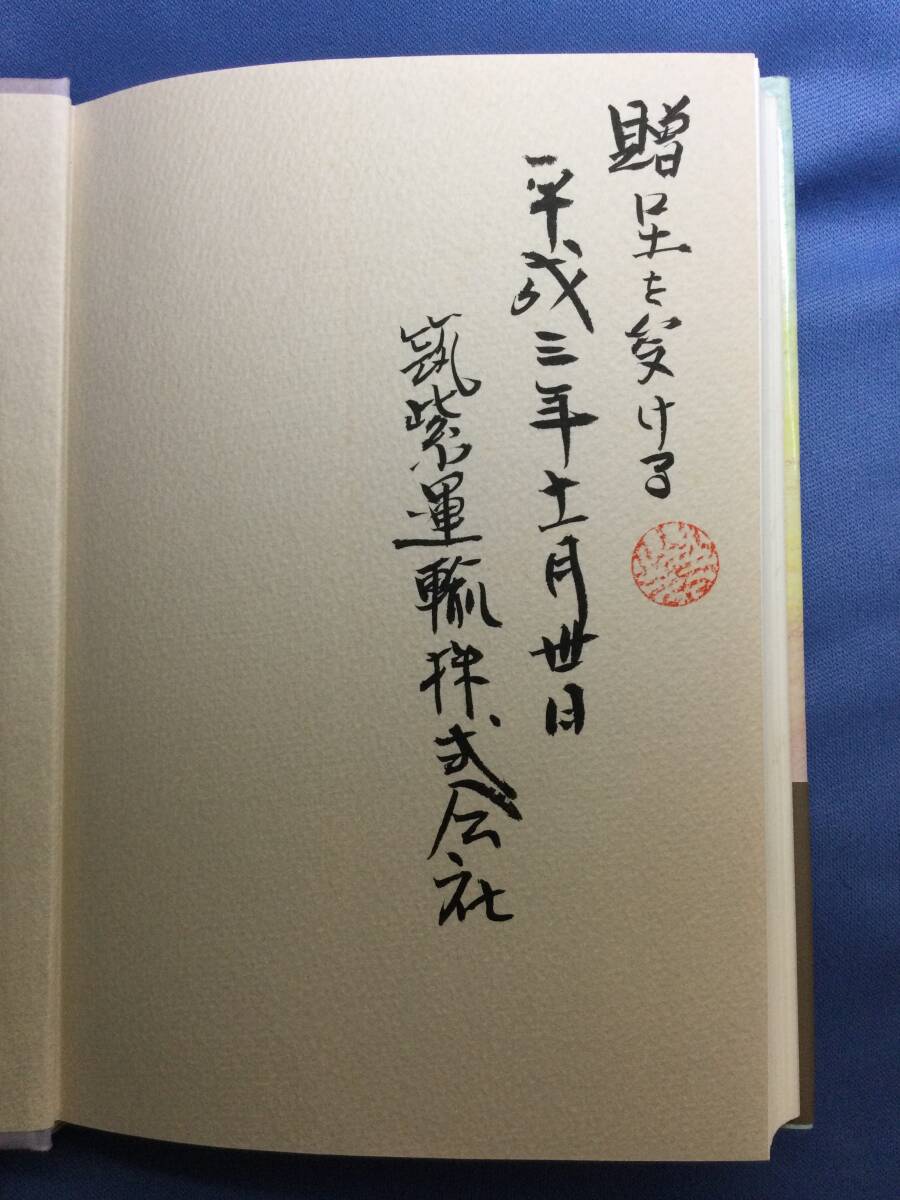 贈呈を受ける
平成三年十一月卅日
筑紫運輸株式会社